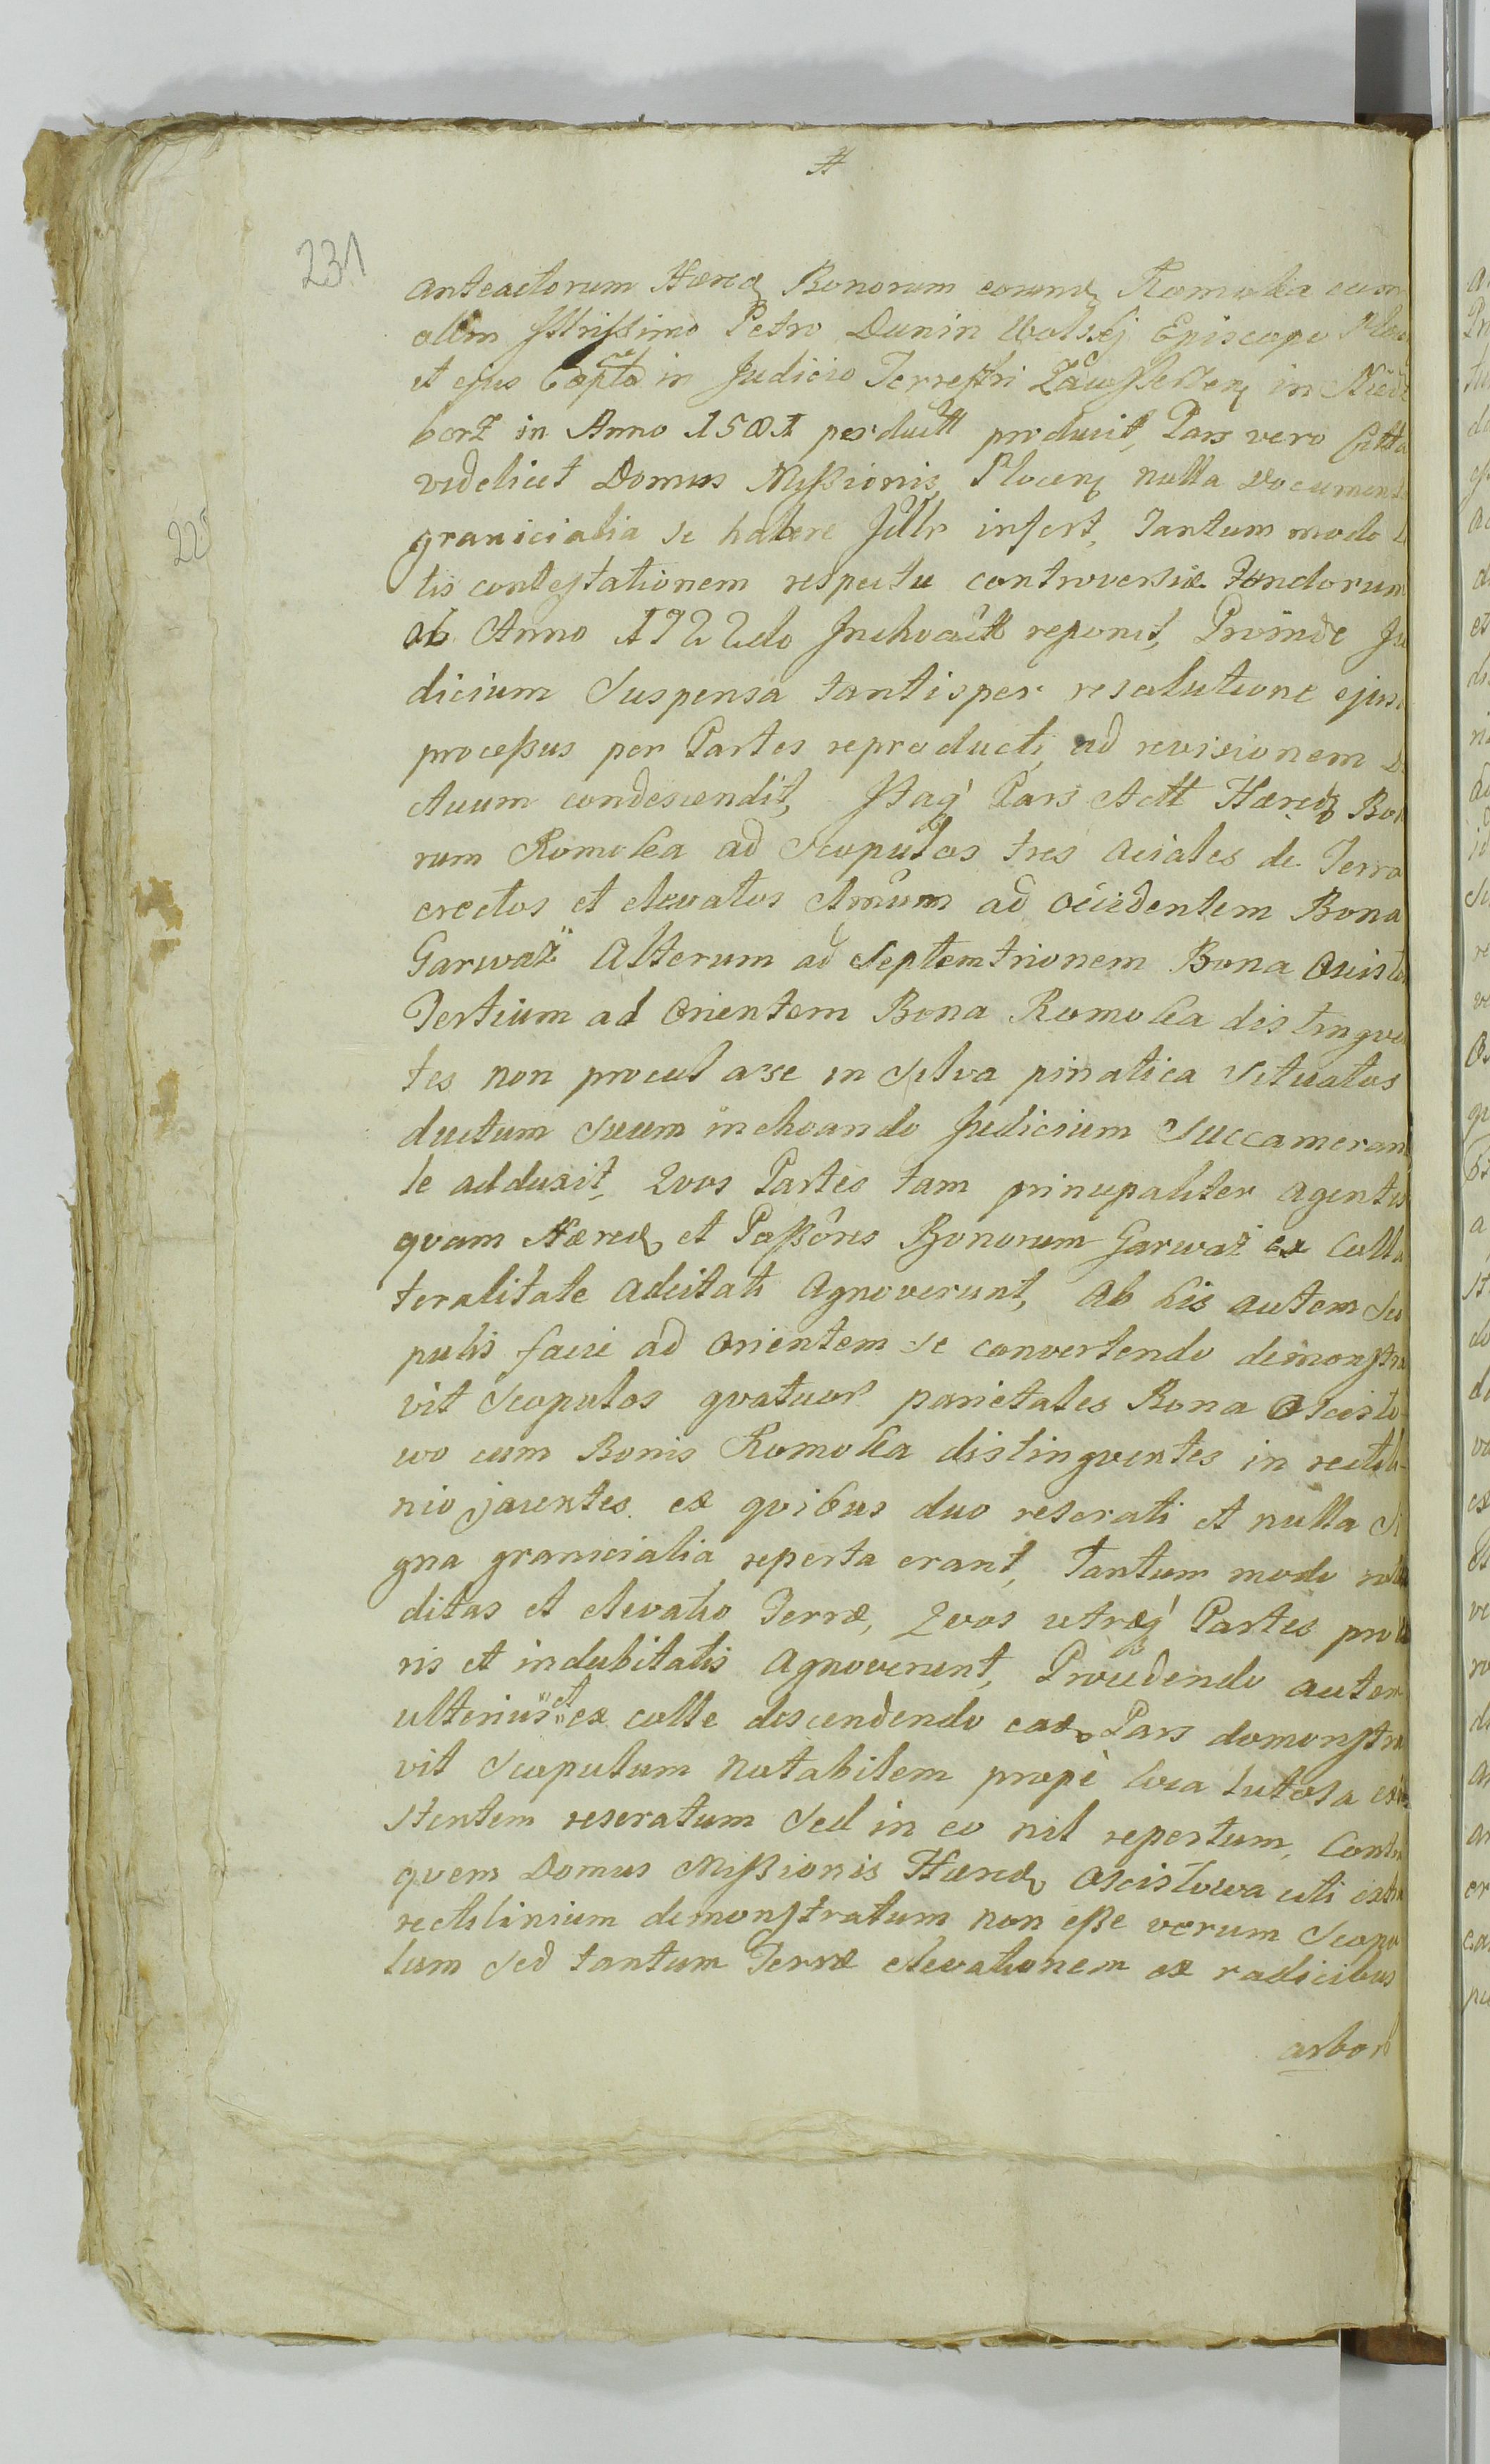 #
231
225
anteactorum Hæred Bonorum eorund Romoka cum
olim Jllrissimo Petro Dunin Wolskj Episcopo Ploc
et ejus Capto in Judicio Terrestri Zawskren in Niedz
borz in Anno 1581 perductt produxit, Pars vero Citta
videlicet Domus Missionis Plocen nulla Documenta
granicialia se habere Jdllr infert, Tantum modo L
tis contestationem respectu controversiæ Fundorum
ab Anno 1722do Jnchoatt reponit, Proinde Ju
dicium suspensa tantisper resolutione ejus
processus per Partes reproducti, ad revisionem D
ctuum condescendit, Jtaq Pars Actt Hæred Bo
rum Romoka ad Scopulos tres aciales de Terra
erectos et elevatos Unum ad Occidentem Bona
Garwaz Alterum ad Septemtrionem Bona Oscisto
Tertium ad Orientem Bona Romoka distingve
tes non procul a se in Silva pinatica situatos
ductum suum inchoando Judicium Succameran
le adduxit, Qvos Partes tam principaliter agentes
qvam Hæred et Possores Bonorum Garwaz ex Colla
teralitate adcitati agnoverunt, Ab his autem Sco
pulis facie ad Orientem se convertendo demonstra
vit Scopulos qvatuor parietales Bona Oscisto-
wo cum Bonis Romoka distingventes in rectili-
nio jacentes ex qvibus duo reserati et nulla Si
gna granicialia reperta erant, Tantum modo
ditas et elevatio Terræ, Qvos utræq Partes pro
ris et indubitatis agnoverunt, Procedendo autem
ulterius et ex colle descendendo ead Pars demonstra
vit Scopulum notabilem propè loca lutosa exi
stentem reseratum Sed in eo nil repertum, Contra
qvem Domus Missionis Hæred Oscistowa uti extra
rectilinium demonstratum non esse verum Scopu
lum Sed tantum Terræ elevationem ex radicibus
arbor